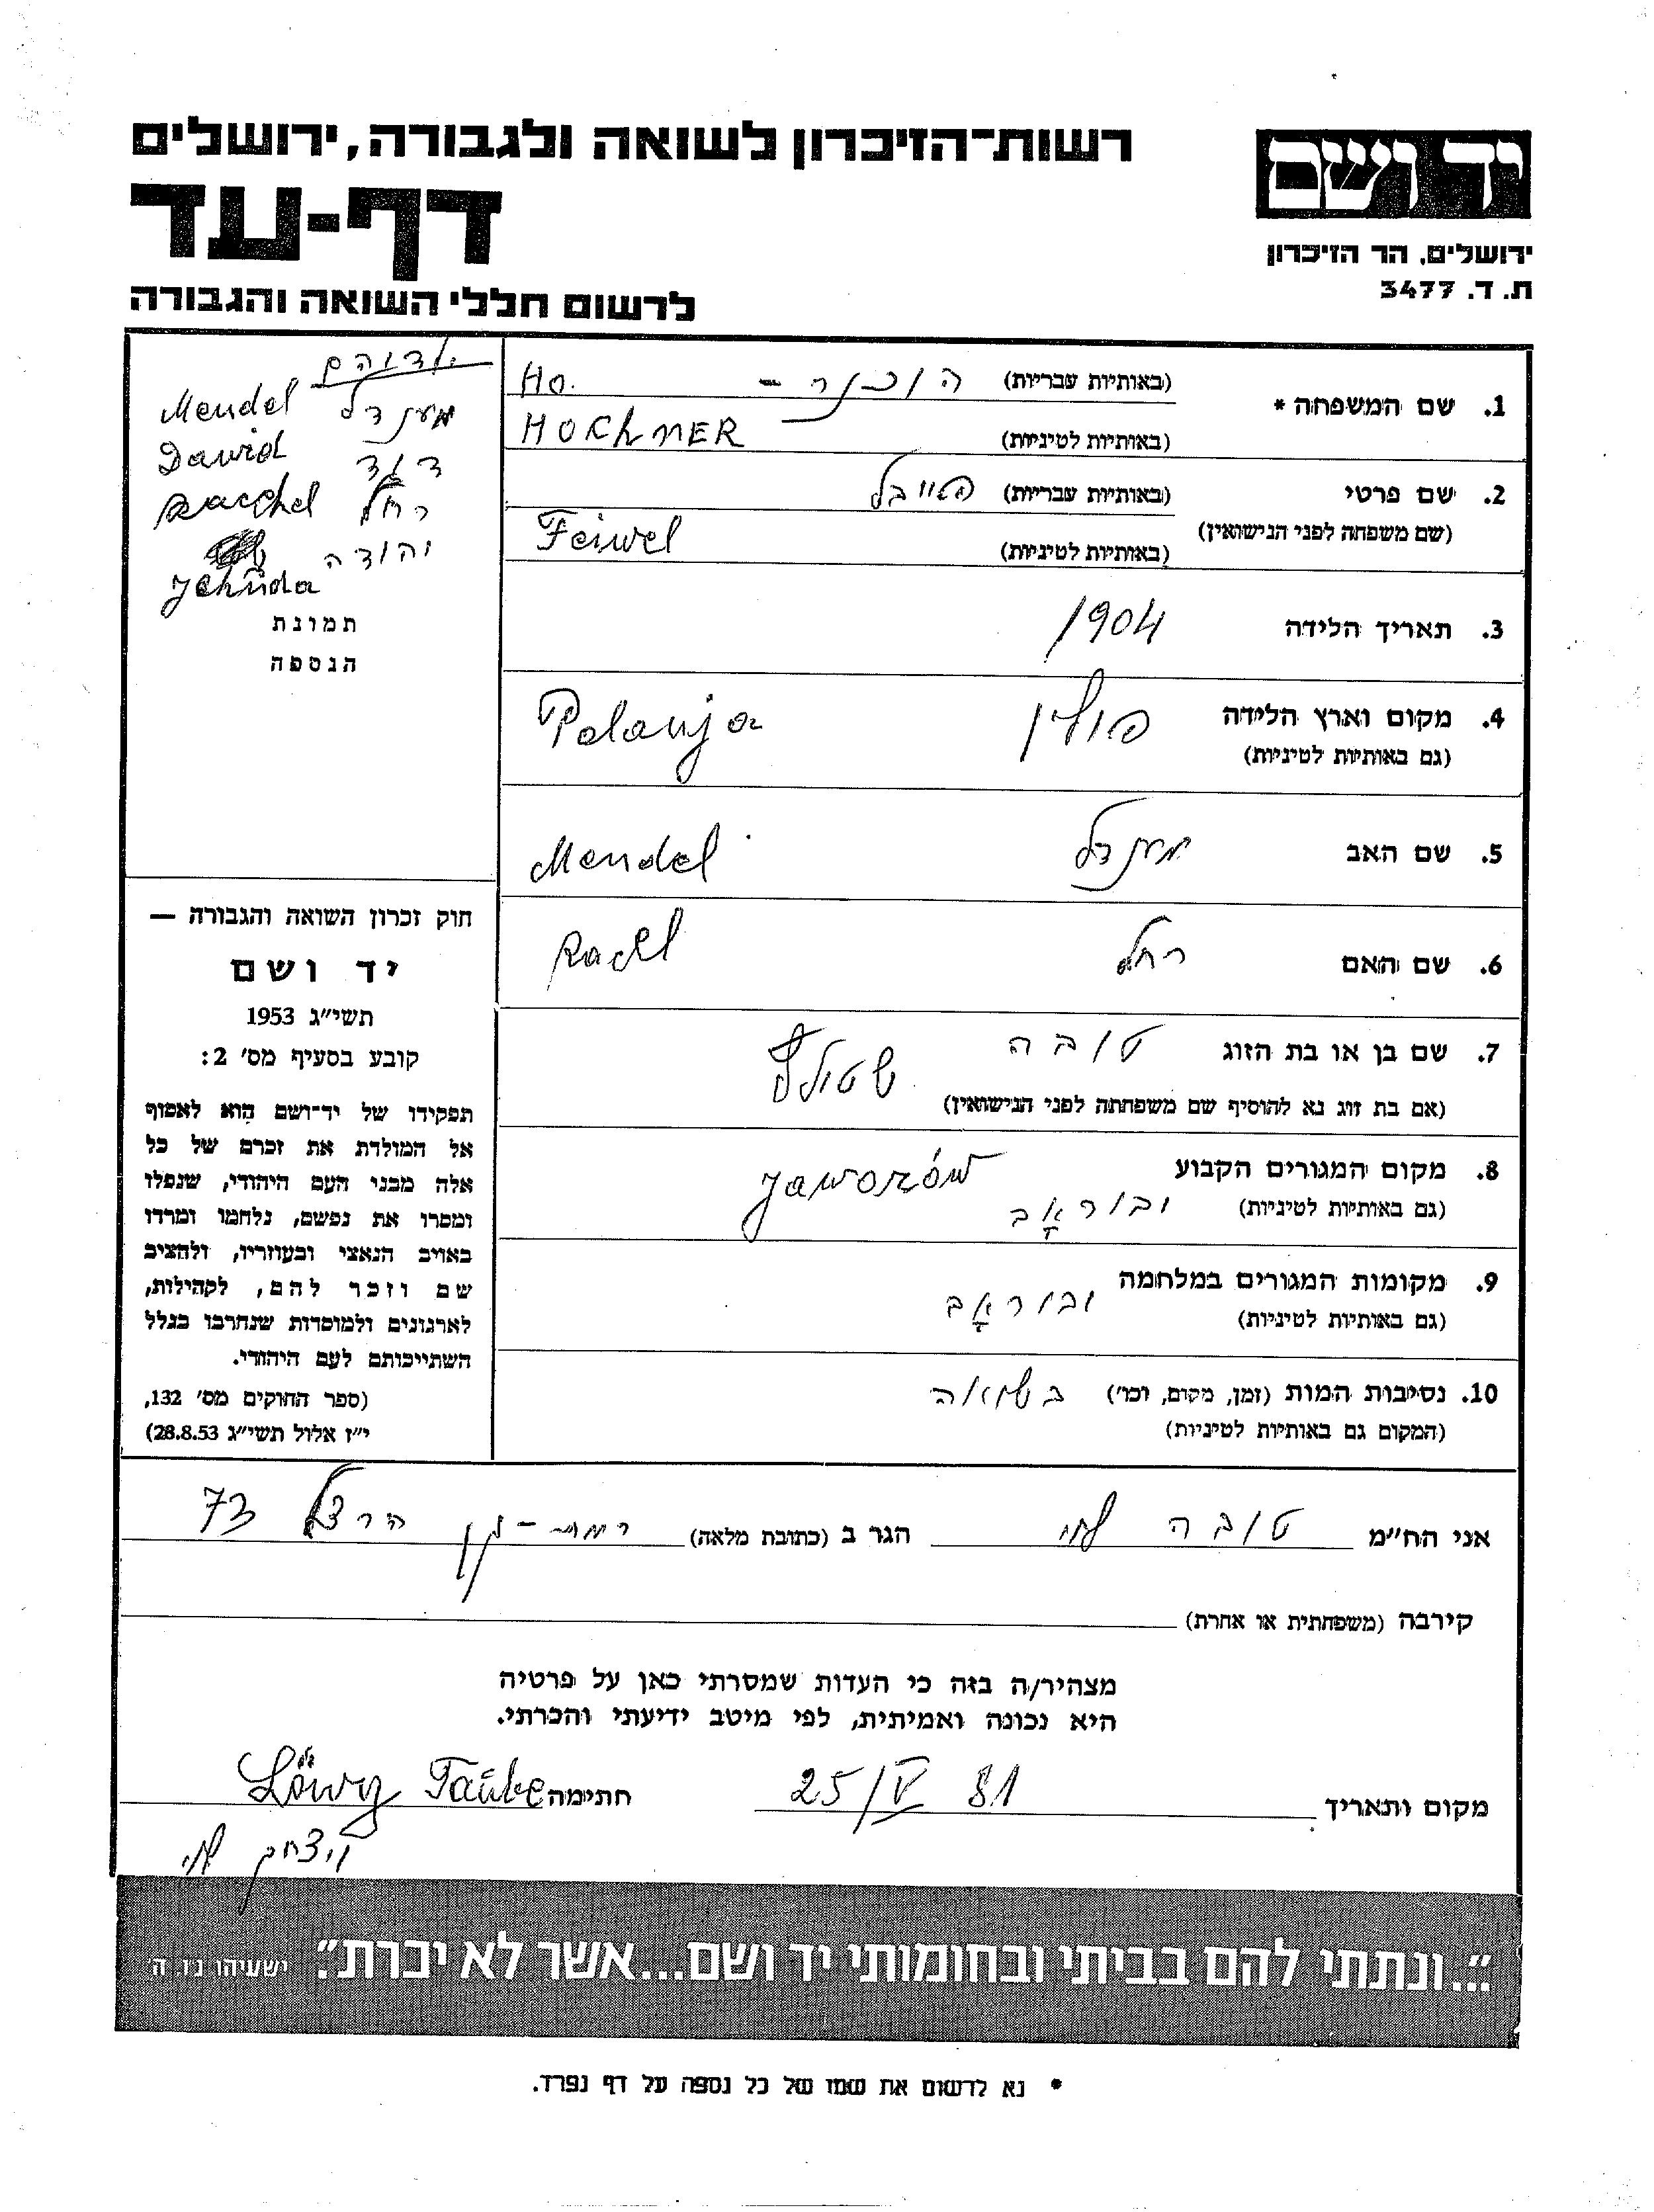 יד ושם
ירושלים, הר הזיכרון
ת. ד. 3477
רשות־הזיכרון לשואה ולגבורה, ירושלים
דף-עד
לרשום חללי השואה והגבורה
ילדיהם
Mendel מענדל
Dawid דוד
Rachel רחל
יהודה
Jehuda
תמונת
הנספה
חוק זכרון השואה והגבורה —
יד ושם
תשי״ג 1953
קובע בסעיף מס׳ 2:
תפקידו של יד־ושם הוא לאסוף
אל המולדת את זכרם של כל
אלה מבני העם היהודי, שנפלו
ומסרו את נפשם, נלחמו ומרדו
באויב הנאצי ובעוזריו, ולהציב
שם וזכר להם, לקהילות,
לארגונים ולמוסדות שנחרבו בגלל
השתייכותם לעם היהודי.
(ספר החוקים מס׳ 132,
י״ז אלול תשי״ג 28.8.53)
1. שם המשפחה *
(באותיות עבריות) הוכנר - Ho.
(באותיות לטיניות) HOCHNER
2. שם פרטי (באותיות עבריות) פייבל
(שם משפחה לפני הנישואין)
(באותיות לטיניות) Feiwel
3. תאריך הלידה 1904
4. מקום וארץ הלידה פולין Polanja
(גם באותיות לטיניות)
5. שם האב מענדל Mendel
6. שם האם רחל Rachl
7. שם בן או בת הזוג טובה
(אם בת זוג נא להוסיף שם משפחתה לפני הנישואין)
8. מקום המגורים הקבוע Jaworów
(גם באותיות לטיניות) יבוראָב
9. מקומות המגורים במלחמה יבוראָב
(גם באותיות לטיניות)
10. נסיבות המות (זמן, מקום, וכו׳) בשואה
(המקום גם באותיות לטיניות)
אני הח״מ טובה לוי הגר ב (כתובת מלאה) רמת-גן הרצל 73
קירבה (משפחתית או אחרת)
מצהיר/ה בזה כי העדות שמסרתי כאן על פרטיה
היא נכונה ואמיתית, לפי מיטב ידיעתי והכרתי.
מקום ותאריך 25/V 81 חתימה Löwy Taube
יצחק לוי
״...ונתתי להם בביתי ובחומותי יד ושם...אשר לא יכרת״. ישעיהו נו, ה׳
* נא לרשום את שמו של כל נספה על דף נפרד.